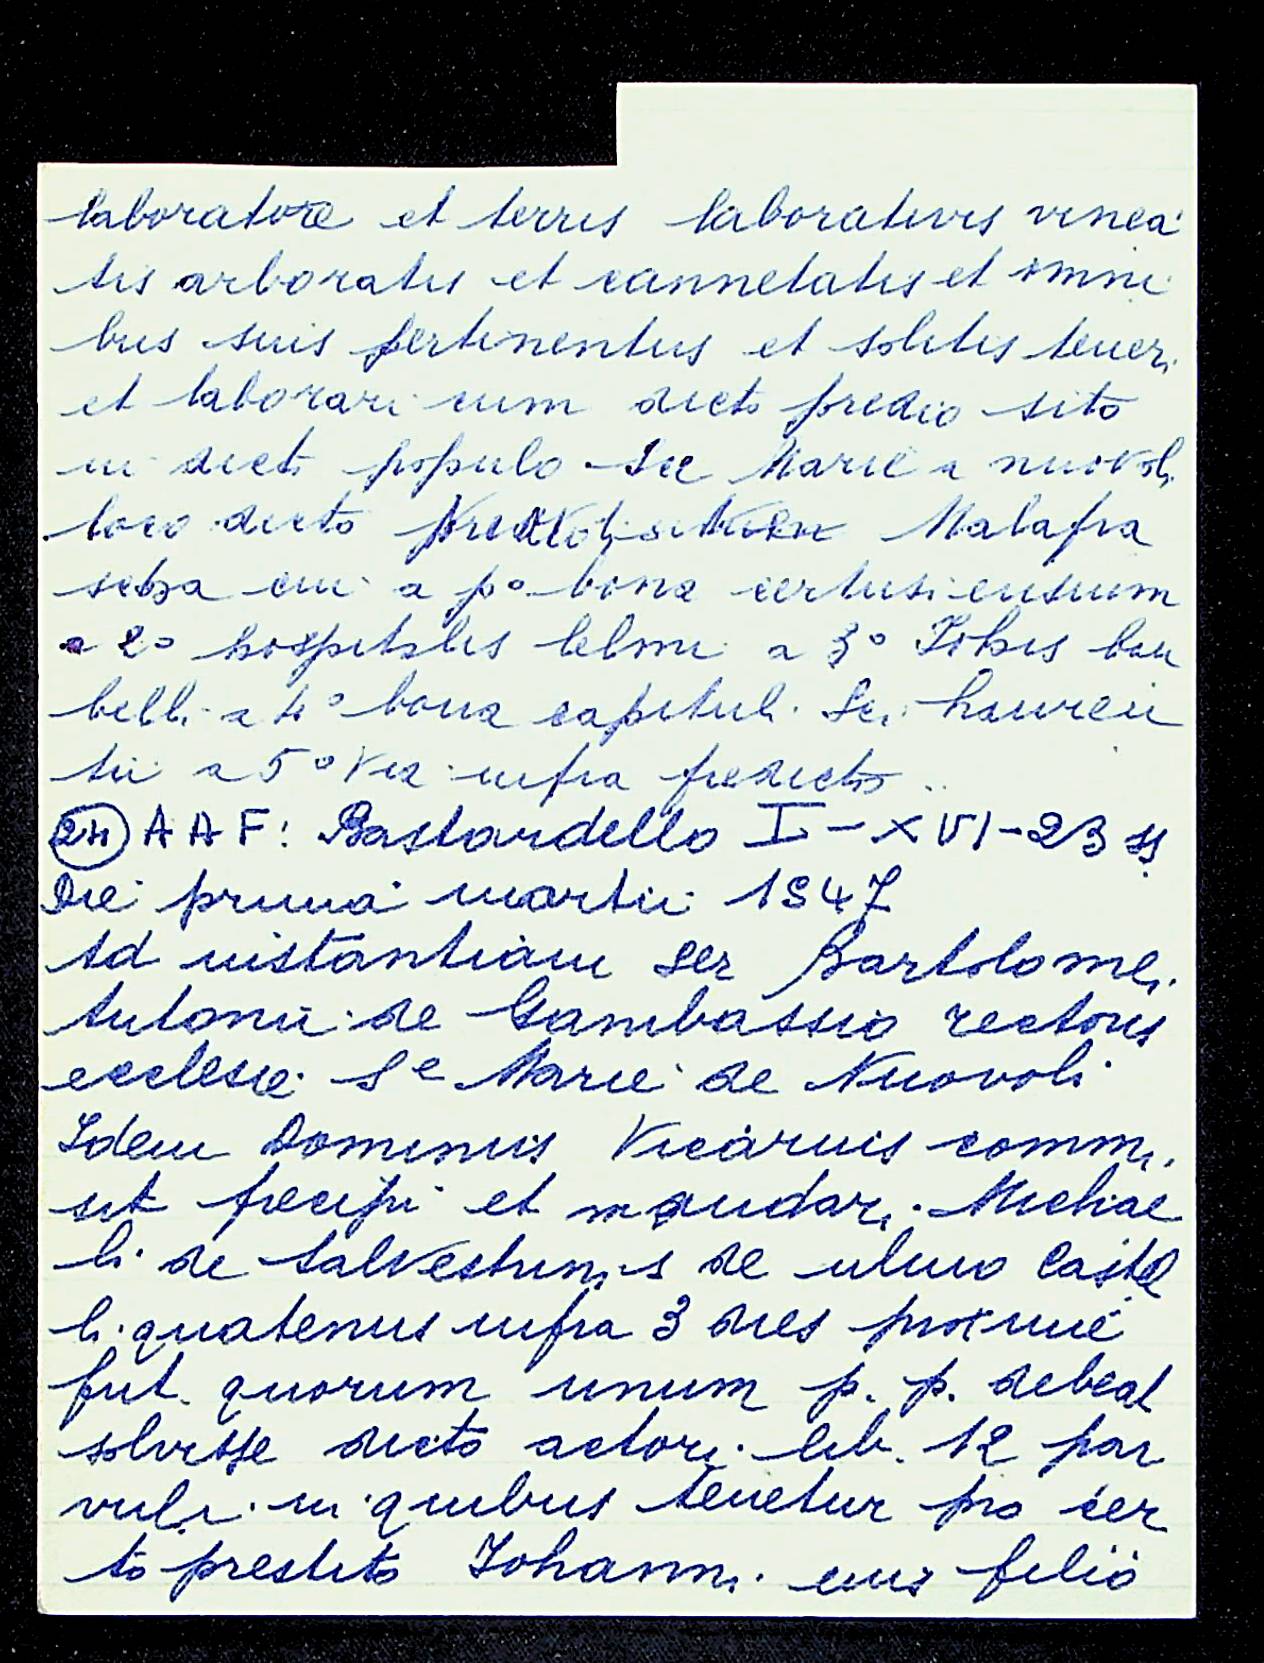 laboratore et terris laborativis vinea
tis arboratis et cannetatis et omni
bus suis pertinentiis et solitis teneri
et laborari cum dicto predio sito
in dicto populo See Marie a nuovoli
loco dicto Malafra
sega cui a p° bona certusiensium
a 2° hospitalis lelmi a 3° Johis bon
belli a 4° bona capituli Sci Lauren
tii a 5° via infra predicto ..
(24) A A F: Bastardello I - XVI - 23 ss
Die prima martii 1347
Ad instantiam ser Bartolomei
Antonii de Gambassio rectoris
ecclesie Se Marie de Nuovoli
Idem Dominus Vicarius commi
sit precipi et mandari Michae
li de Salvestrinis de ulmo Castel
li quatenus infra 3 dies proxime
fut. quorum unum p. p. debeat
solvisse dicto actori lib. 12 par
vuli in quibus tenetur pro cer
to prestito Johanni eius filio